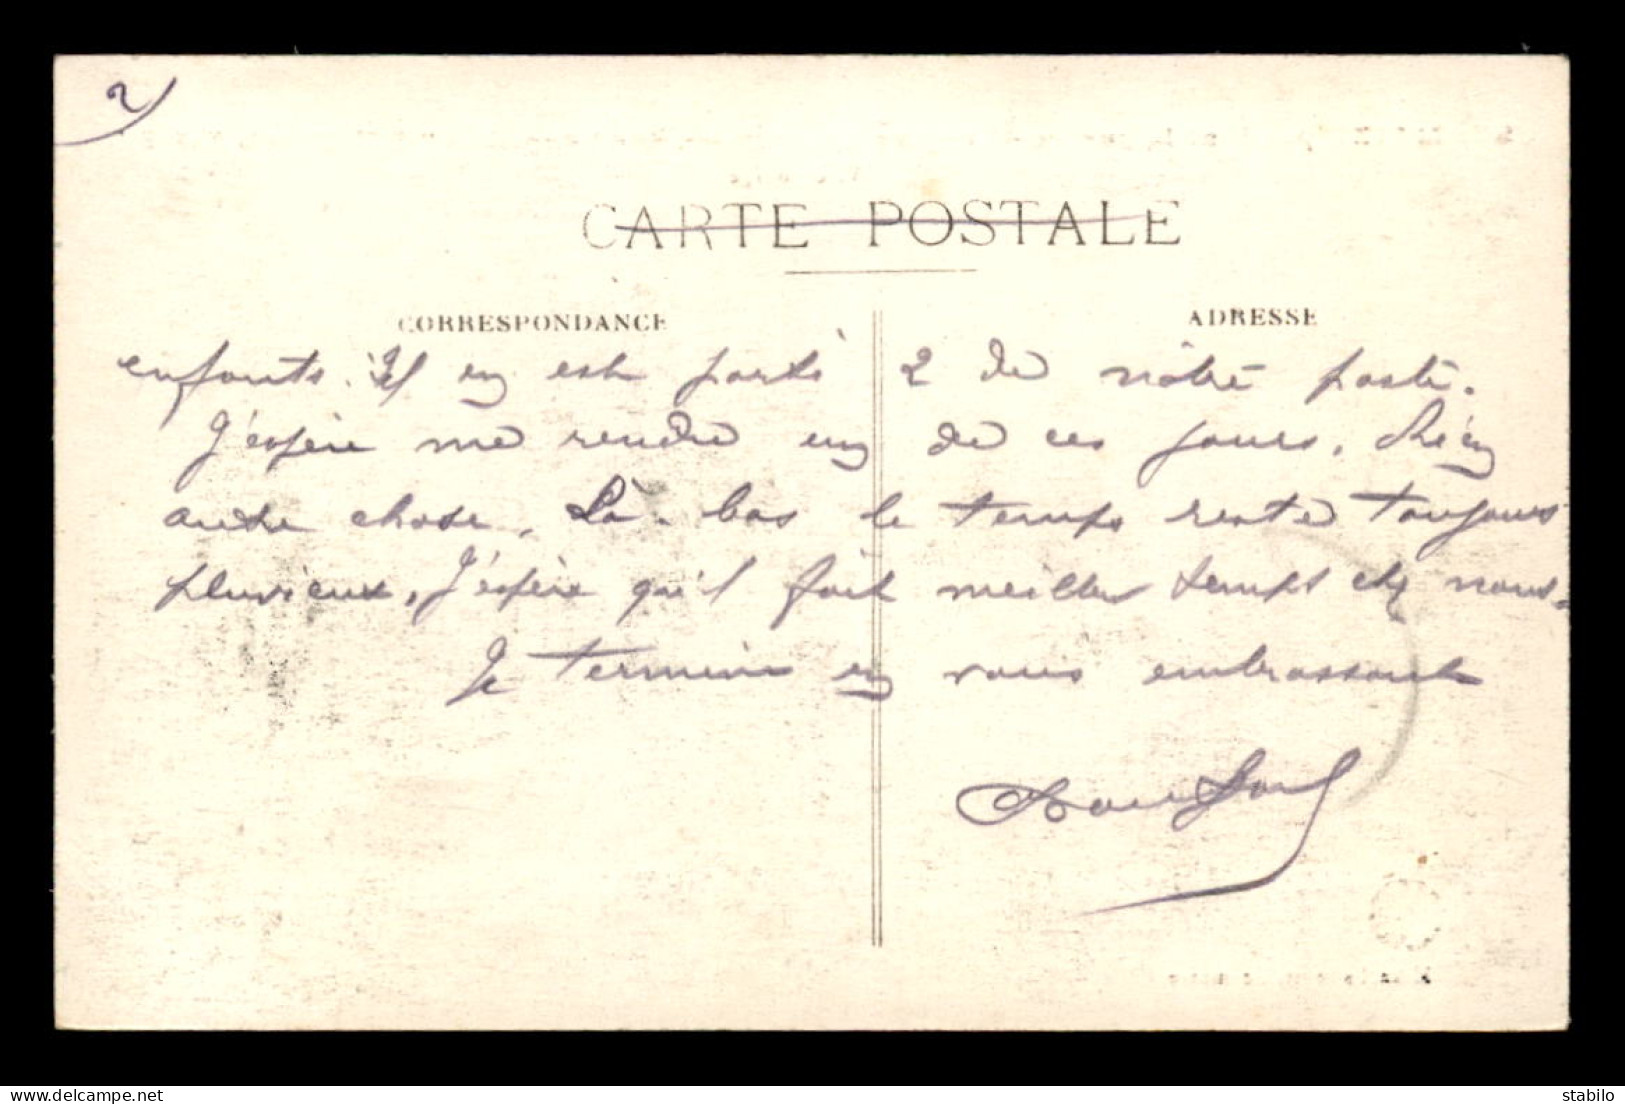 2
CARTE POSTALE
CORRESPONDANCE
ADRESSE
enfants. Il en est parti 2 de notre poste.
J'espère me rendre un de ces jours. Rien
autre chose. Là-bas le temps reste toujours
pluvieux, J'espère qu'il fait meilleur temps chez nous.
Je termine en vous embrassant
stabilo
delcampe.net